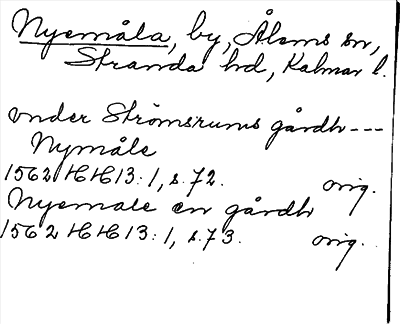 Nyemåla, by, Ålems sn,
Stranda hd, Kalmar l.
vnder Strömsrums gårdh ---
Nymåle
1562 HH 13:1, s. 72. orig.
Nyemale en gårdh
1562 HH 13:1, s. 73. orig.